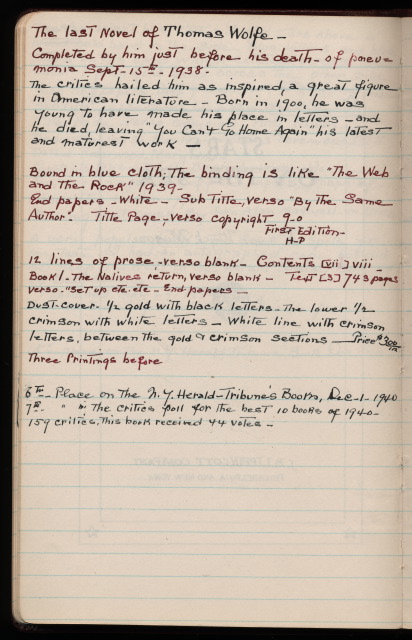 The last Novel of Thomas Wolfe —
Completed by him just before his death - of pneu-
monia Sept-15th - 1938.
The critics hailed him as inspired, a great figure
in American literature - Born in 1900, he was
young to have made his place in letters - and
he died, leaving "You Can't Go Home Again" his latest
and maturest work —
Bound in blue cloth; The binding is like "The Web
and the Rock" 1939-
End papers - White - Sub Title, verso "By The Same
Author. Title Page, verso copyright 9-0
First Edition-
H-P
12 lines of prose - verso blank - Contents [vii] viii
Book I - The Natives return, verso blank - Text [3] 743 pages
verso "Set up etc. etc - End papers —
Dust-cover - 1/2 gold with black letters - The lower 1/2
crimson with white letters - White line with crimson
letters, between the gold & crimson sections - Price $3.00
Three Printings before
6th - Place on the N.Y. Herald-Tribune's Books, Dec-1-1940
7th - " " The critics poll for the best 10 books of 1940-
159 critics, this book received 44 votes -